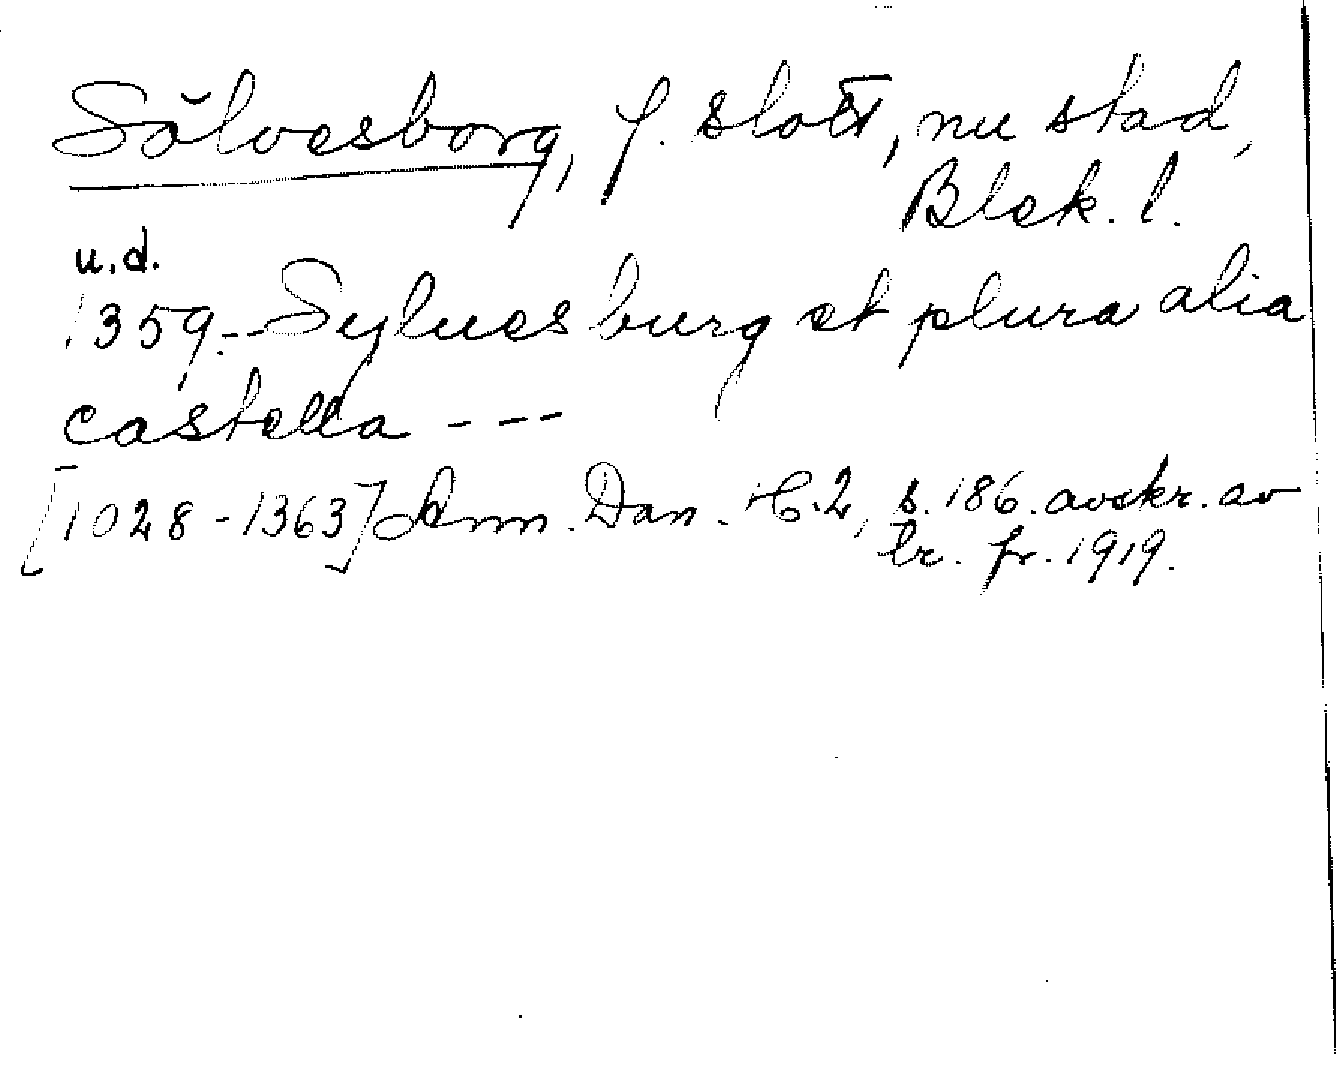 Sölvesborg, f. slott, nu stad,
Blek. l.
u.d.
1359. -- Syluesburg et plura alia
castella ---
[1028-1363] Ann. Dan. H. 2, s. 186. avskr. av
tr. fr. 1919.